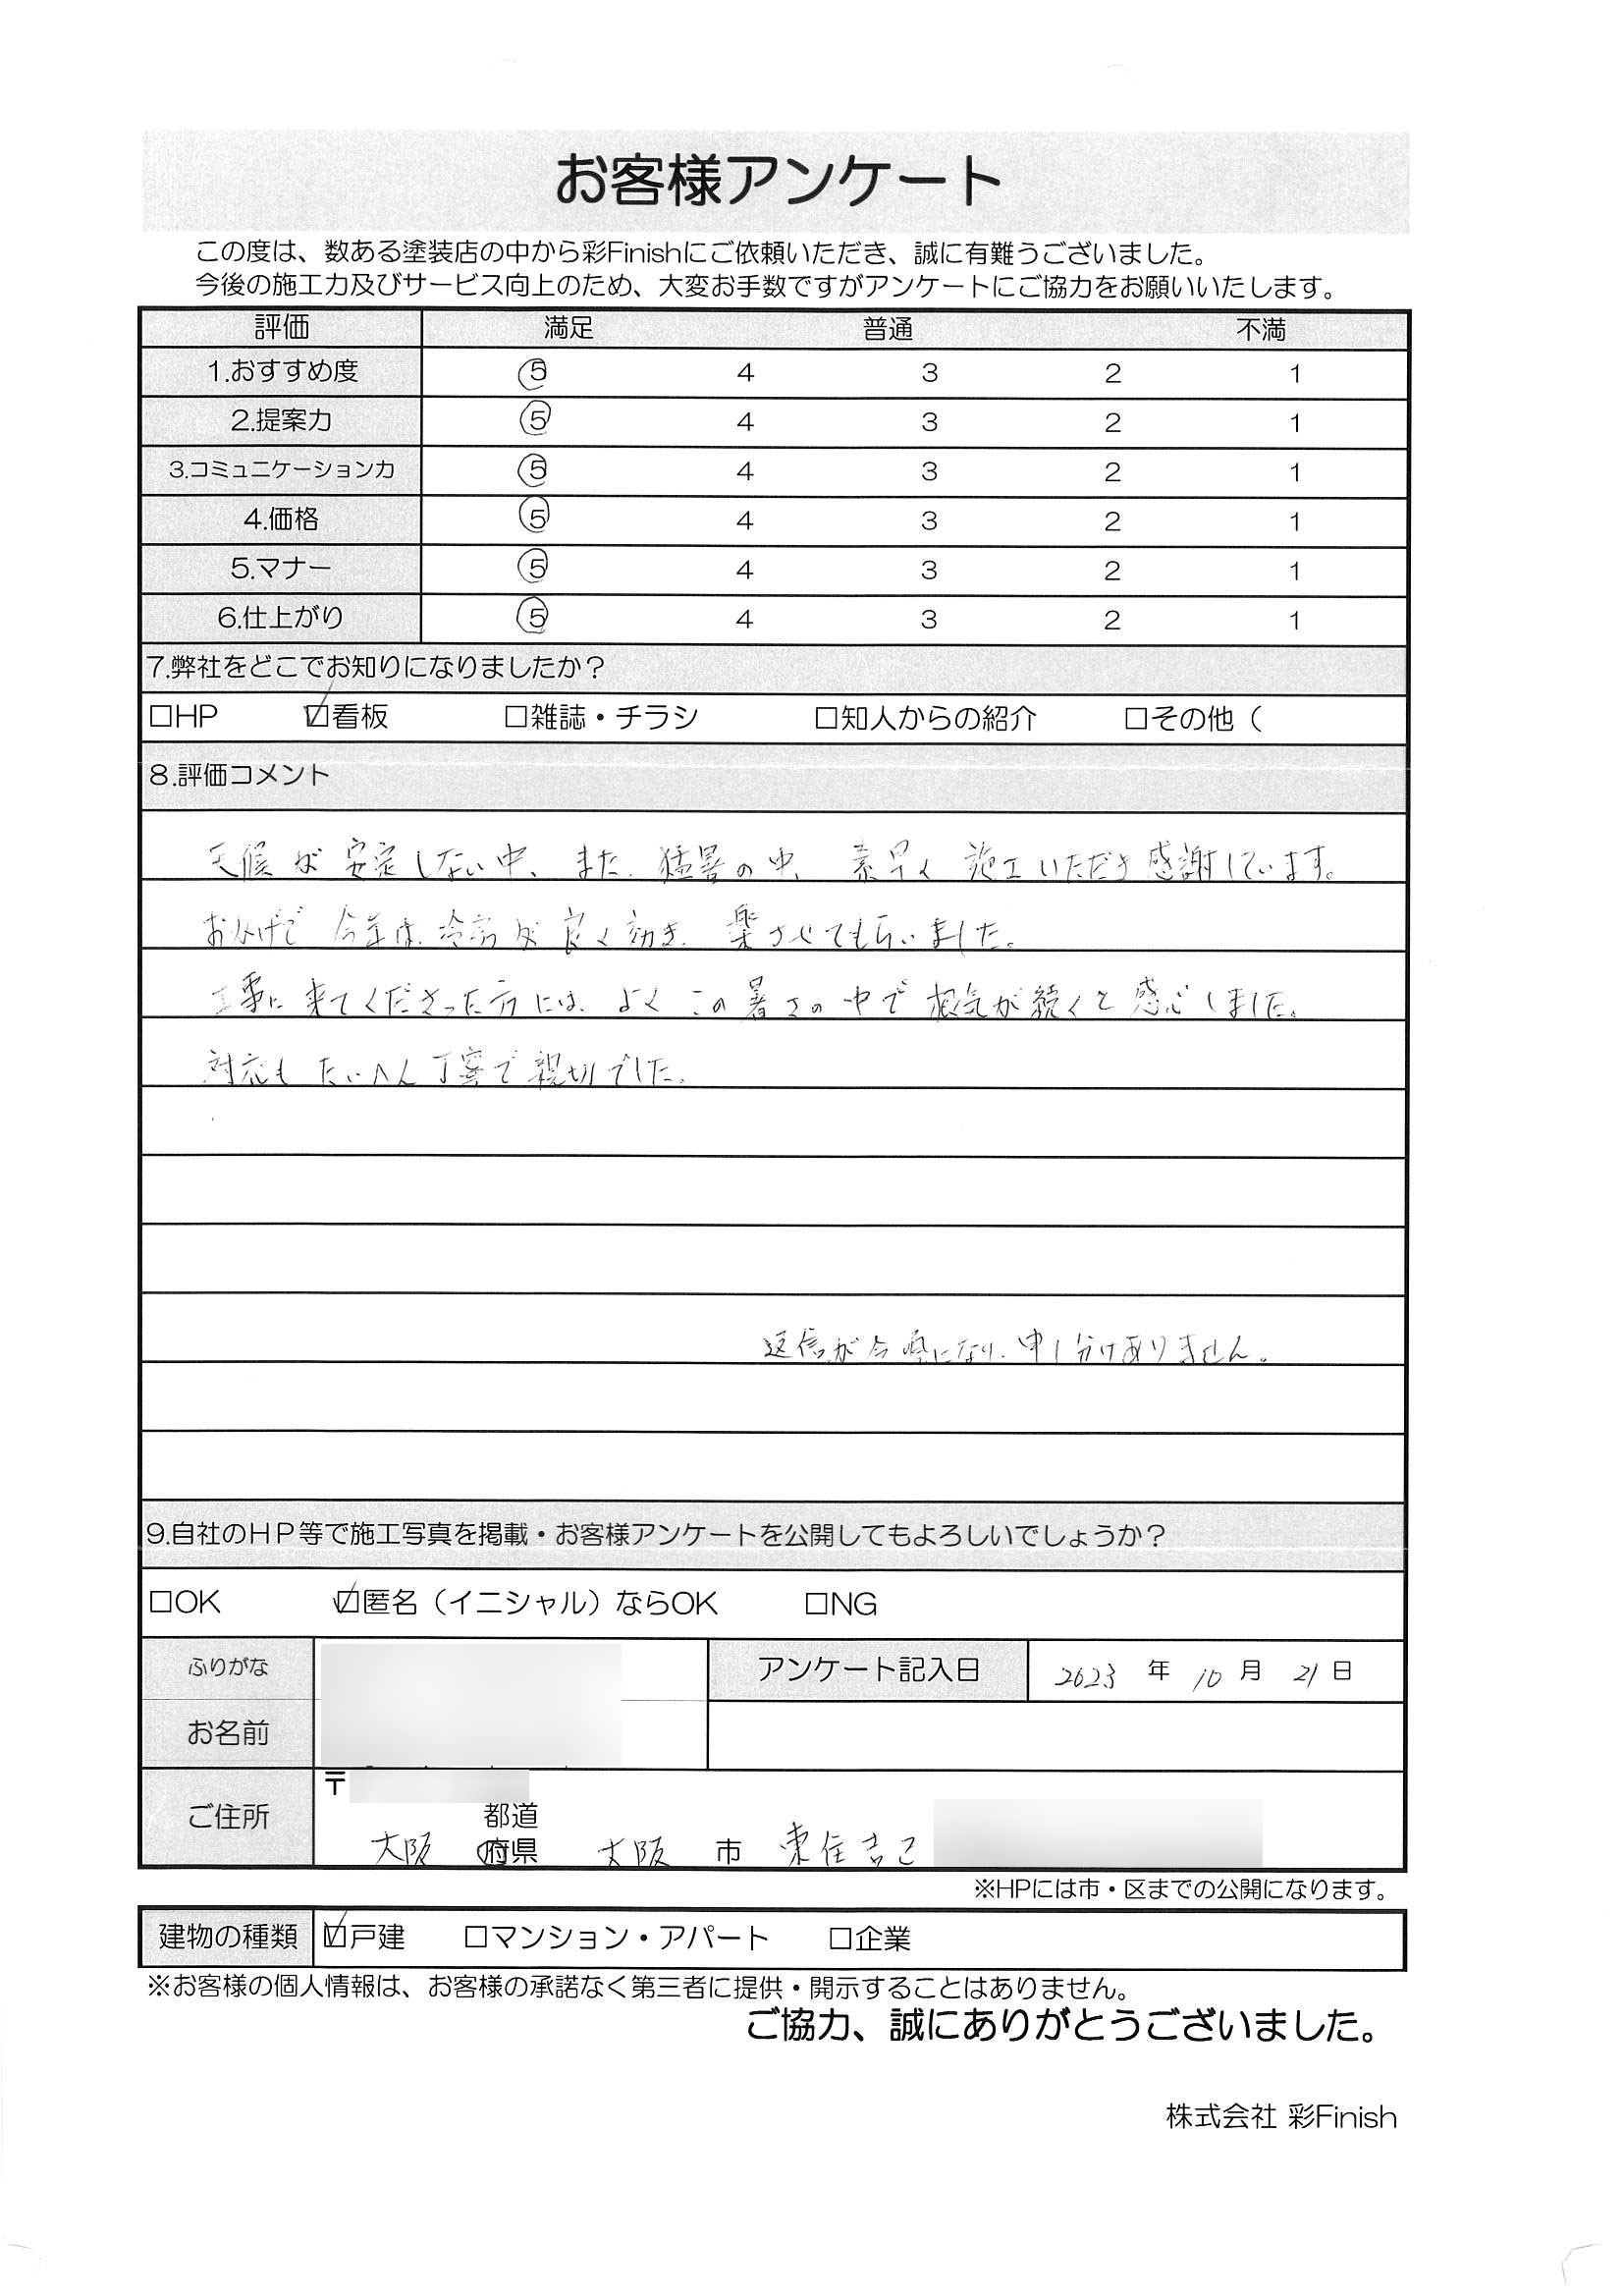 お客様アンケート
この度は、数ある塗装店の中から彩Finishにご依頼いただき、誠に有難うございました。
今後の施工力及びサービス向上のため、大変お手数ですがアンケートにご協力をお願いいたします。
評価 満足 普通 不満
1.おすすめ度 5 4 3 2 1
2.提案力 5 4 3 2 1
3.コミュニケーション力 5 4 3 2 1
4.価格 5 4 3 2 1
5.マナー 5 4 3 2 1
6.仕上がり 5 4 3 2 1
7.弊社をどこでお知りになりましたか？
□HP ☑看板 □雑誌・チラシ □知人からの紹介 □その他（
8.評価コメント
天候が安定しない中、また、猛暑の中、素早く施工いただき感謝しています。
おかげで今年は、冷房が良く効き、楽させてもらいました。
工事に来てくださった方には、よくこの暑さの中で根気が続くと感心しました。
対応もたいへん丁寧で親切でした。
返信が今頃になり、申し分けありません。
9.自社のＨＰ等で施工写真を掲載・お客様アンケートを公開してもよろしいでしょうか？
□OK ☑匿名（イニシャル）ならOK □NG
ふりがな アンケート記入日 2023 年 10 月 21 日
お名前
〒
ご住所 都道
大阪 府県 大阪 市 東住吉区
※HPには市・区までの公開になります。
建物の種類 ☑戸建 □マンション・アパート □企業
※お客様の個人情報は、お客様の承諾なく第三者に提供・開示することはありません。
ご協力、誠にありがとうございました。
株式会社 彩Finish